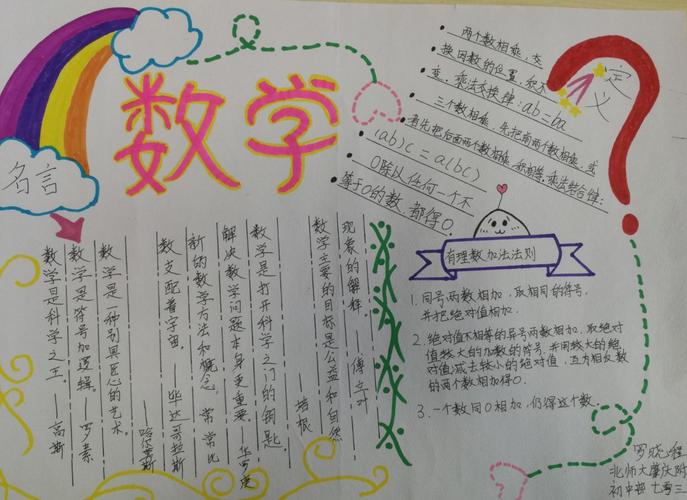 数学
名言
数学是科学之王。——高斯
数学是符号加逻辑。——罗素
数学是一种别具匠心的艺术。——哈尔莫斯
数支配着宇宙。 毕达哥拉斯
新的数学方法和概念，常常比
解决数学问题本身更重要。 华罗庚
数学是打开科学之门的钥匙。——培根
数学主要的目标是公益和自然
现象的解释 ——傅立叶
定义
两个数相乘，交
换因数的位置，积不
变，乘法交换律:ab=ba
三个数相乘，先把前两个数相乘，或
者先把后面两个数相乘，积相等，乘法结合律：
(ab)c=a(bc)
0除以任何一个不
等于0的数，都得0.
有理数加法法则
1.同号两数相加，取相同的符号，
并把绝对值相加。
2.绝对值不相等的异号两数相加，取绝对
值较大的加数的符号，并用较大的绝
对值减去较小的绝对值，互为相反数
的两个数相加得0。
3.一个数同0相加，仍得这个数。
北师大肇庆附
初中部七